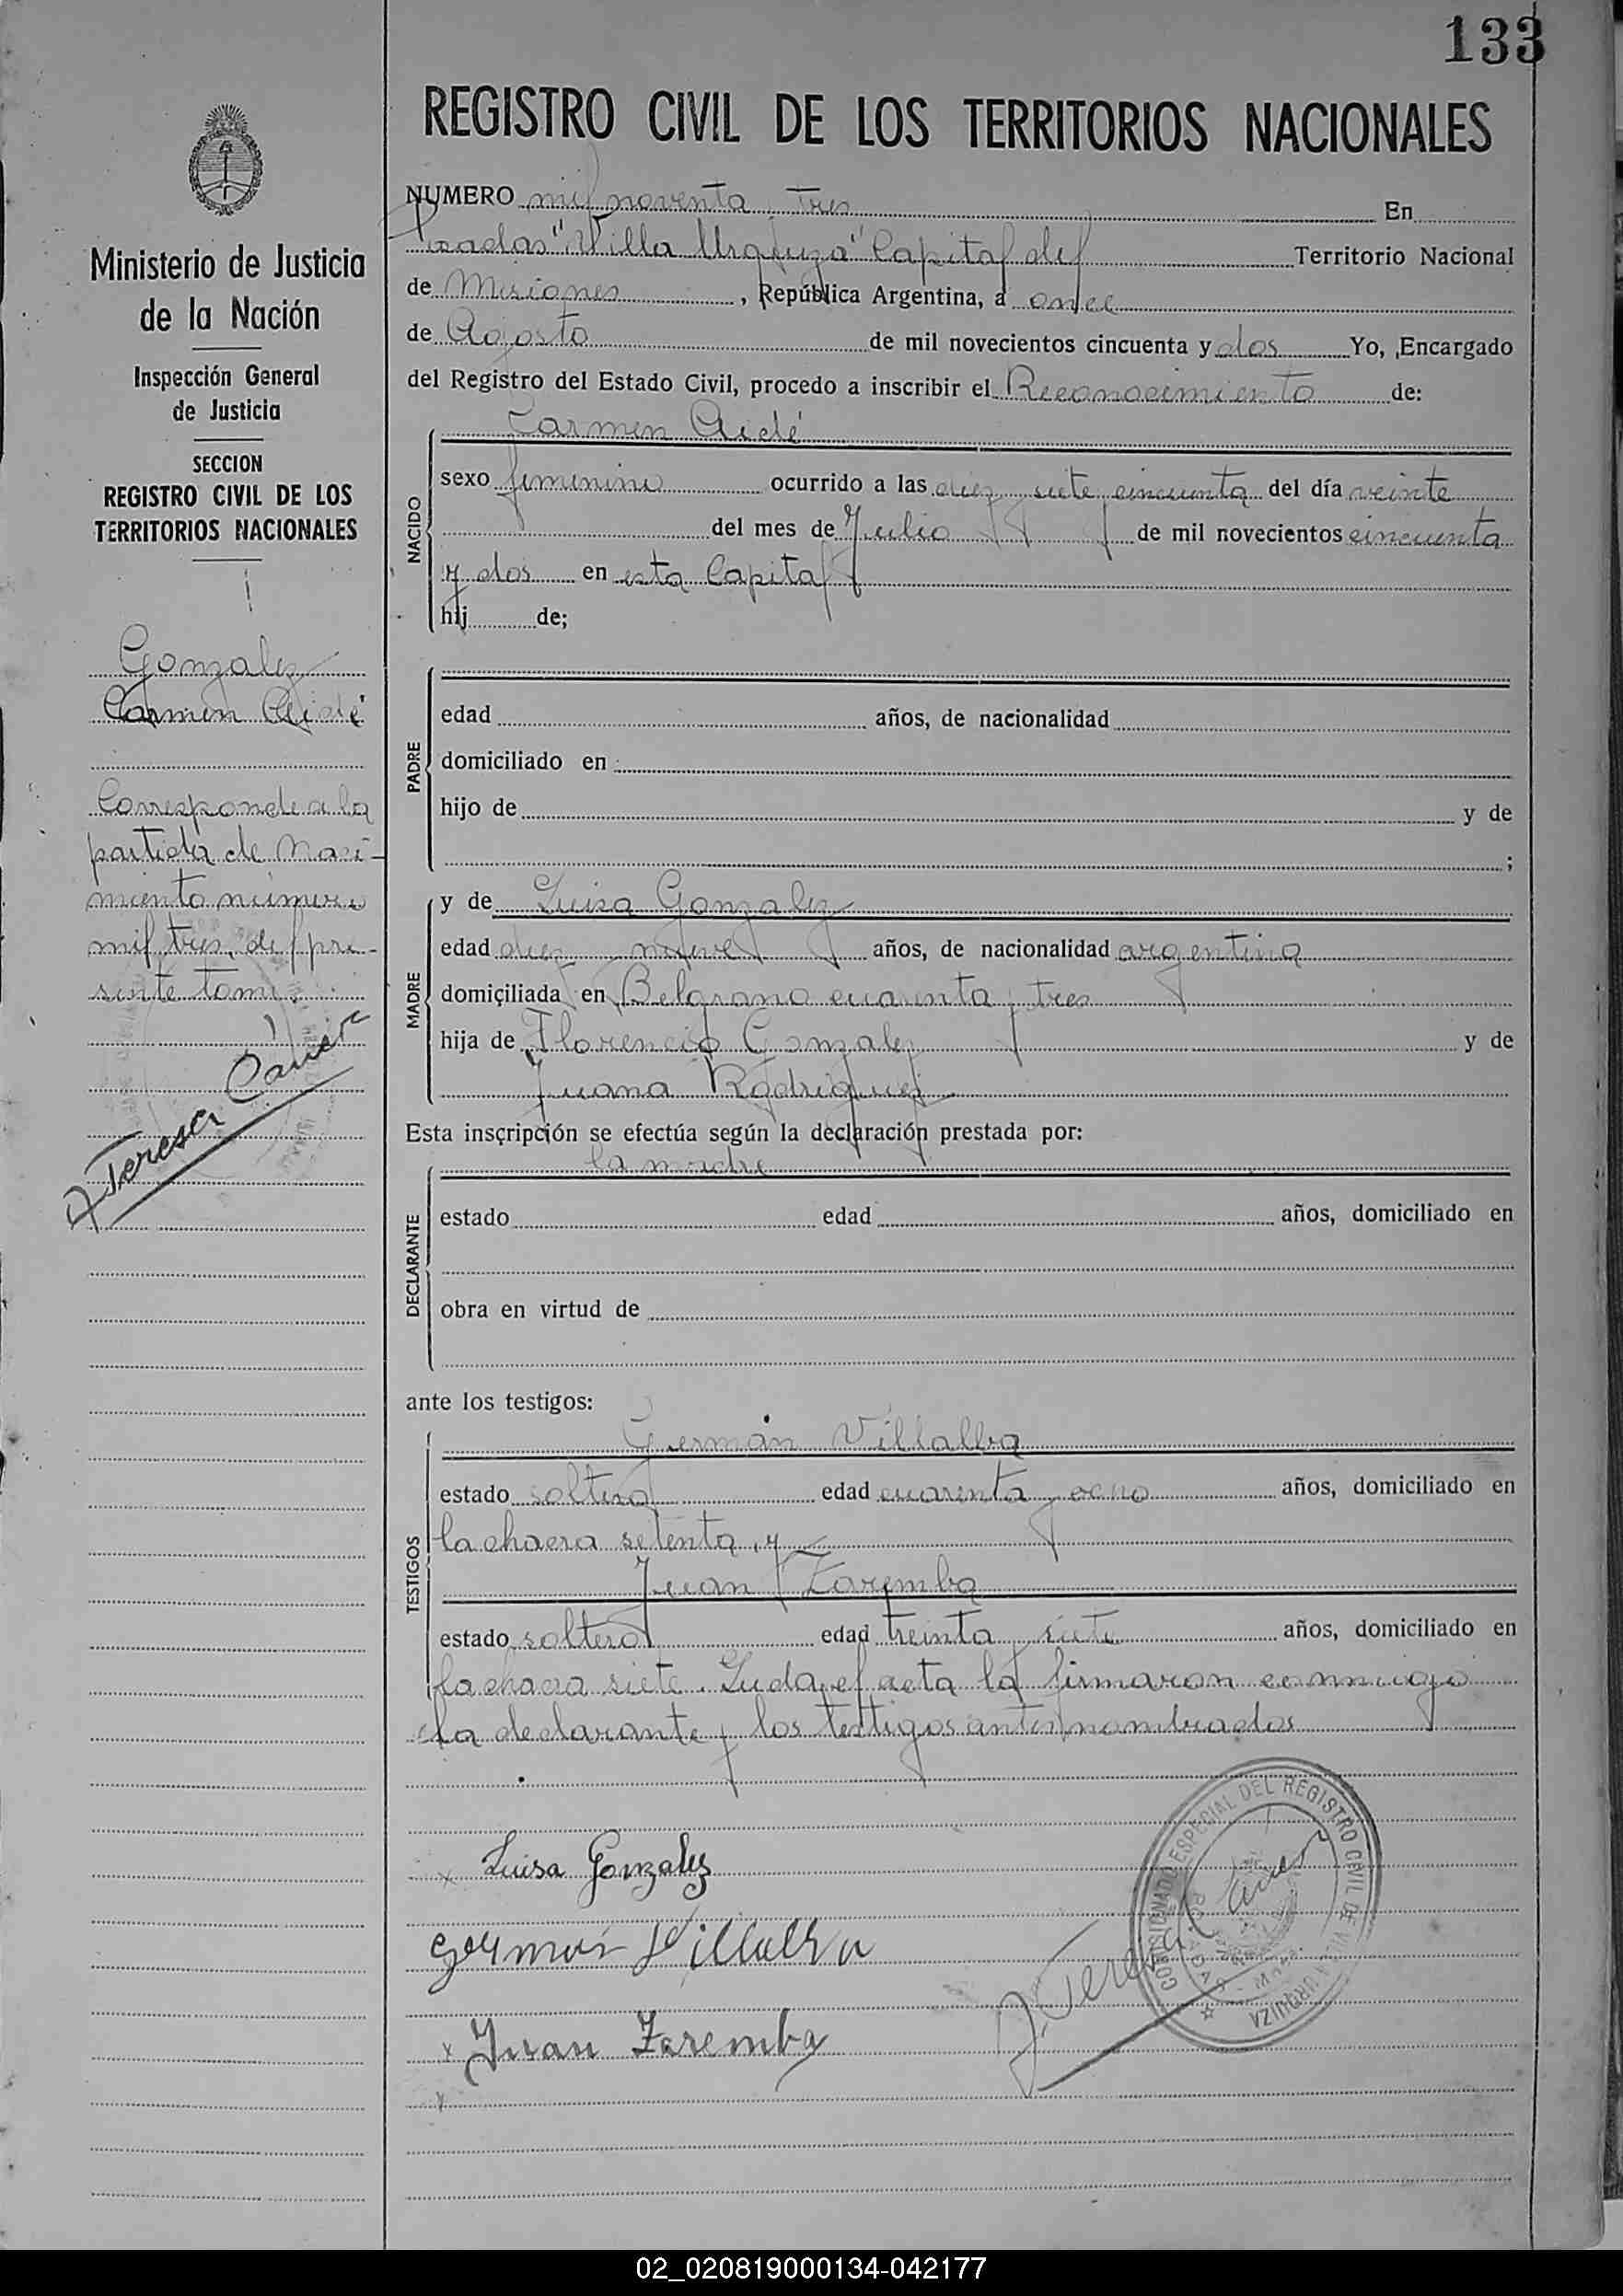 133
REGISTRO CIVIL DE LOS TERRITORIOS NACIONALES
Ministerio de Justicia
de la Nación
Inspección General
de Justicia
SECCION
REGISTRO CIVIL DE LOS
TERRITORIOS NACIONALES
Gonzalez
Carmen Aidé
Corresponde a la
partida de Naci-
miento número
mil tres, del pre-
sente tomo.
NUMERO mil noventa y tres En
Posadas "Villa Urquiza" Capital del Territorio Nacional
de Misiones, República Argentina, a once
de Agosto de mil novecientos cincuenta y dos Yo, Encargado
del Registro del Estado Civil, procedo a inscribir el Reconocimiento de:
NACIDO
Carmen Aidé
sexo femenino ocurrido a las diez y siete y cincuenta del día veinte
del mes de Julio de mil novecientos cincuenta
y dos en esta Capital
hij de;
PADRE
edad años, de nacionalidad
domiciliado en
hijo de y de
;
MADRE
y de Luisa Gonzalez
edad diez y nueve años, de nacionalidad argentina
domiciliada en Belgrano cuarenta y tres
hija de Florencio Gonzalez y de
Juana Rodriguez
Esta inscripción se efectúa según la declaración prestada por:
DECLARANTE
la madre
estado edad años, domiciliado en
obra en virtud de
ante los testigos:
TESTIGOS
Germán Villalba
estado soltero edad cuarenta y ocho años, domiciliado en
la chacra setenta, y
Juan Zaremba
estado soltero edad treinta y siete años, domiciliado en
la chacra siete. Leida el acta la firmaron conmigo
la declarante y los testigos antes nombrados
x Luisa Gonzalez
German Villalba
x Juan Zaremba
x
COMISIONADO ESPECIAL DEL REGISTRO CIVIL DE VILLA URQUIZA
02_020819000134-042177